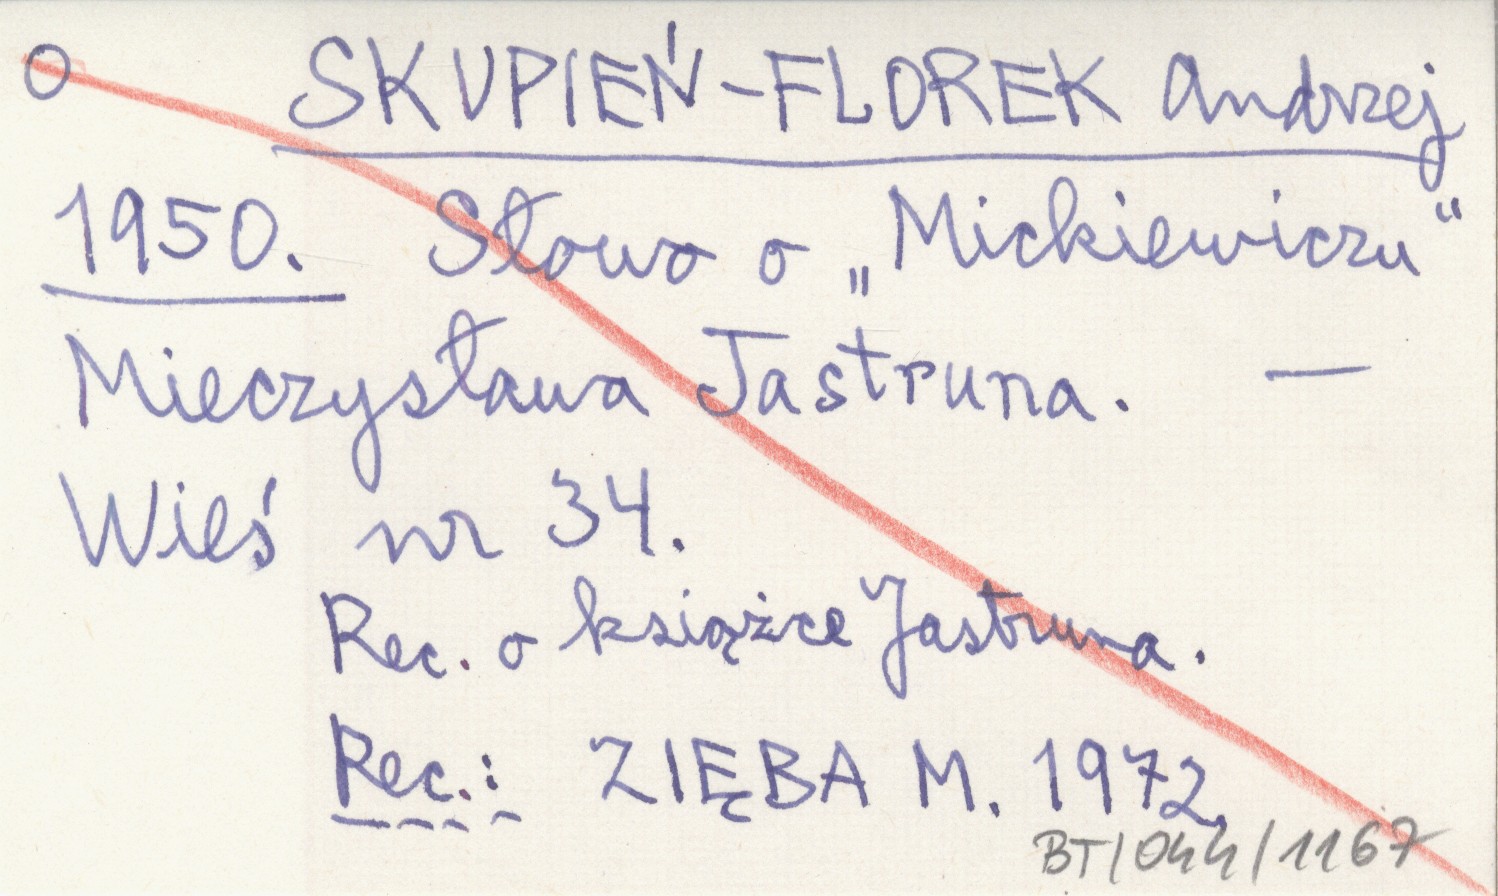 O SKUPIEŃ-FLOREK Andrzej
1950. Słowo o „Mickiewiczu“
Mieczysława Jastruna. —
Wieś nr 34.
Rec. o książce Jastruna.
Rec.: ZIĘBA M. 1972.
BT/044/1167